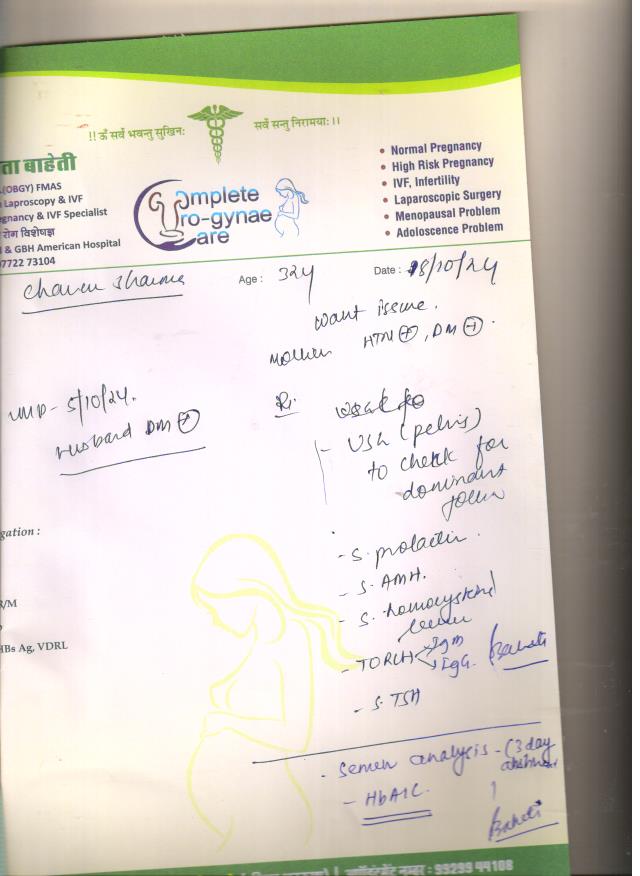 !! ॐ सर्वे भवन्तु सुखिनः सर्वे सन्तु निरामयाः ।।
ता बाहेती
(OBGY) FMAS
Laproscopy & IVF
gnancy & IVF Specialist
रोग विशेषज्ञ
& GBH American Hospital
7722 73104
Complete
Uro-gynae
Care
• Normal Pregnancy
• High Risk Pregnancy
• IVF, Infertility
• Laparoscopic Surgery
• Menopausal Problem
• Adoloscence Problem
Sharma Age : 32y Date : 18/10/24
want issue.
Mother HTN (+), DM (-).
LMP - 5/10/24.
Husband DM (+)
Rx
- USG (pelvis)
to check for
dominant
gation :
- S. prolactin.
- S. AMH.
- S. homocysteine
R/M
HBs Ag, VDRL
- TORCH IgM
IgG. Baheti
- S. TSH
- Semen analysis - (3 day
- HbA1C.
Baheti
नम्बर : 93299 44108